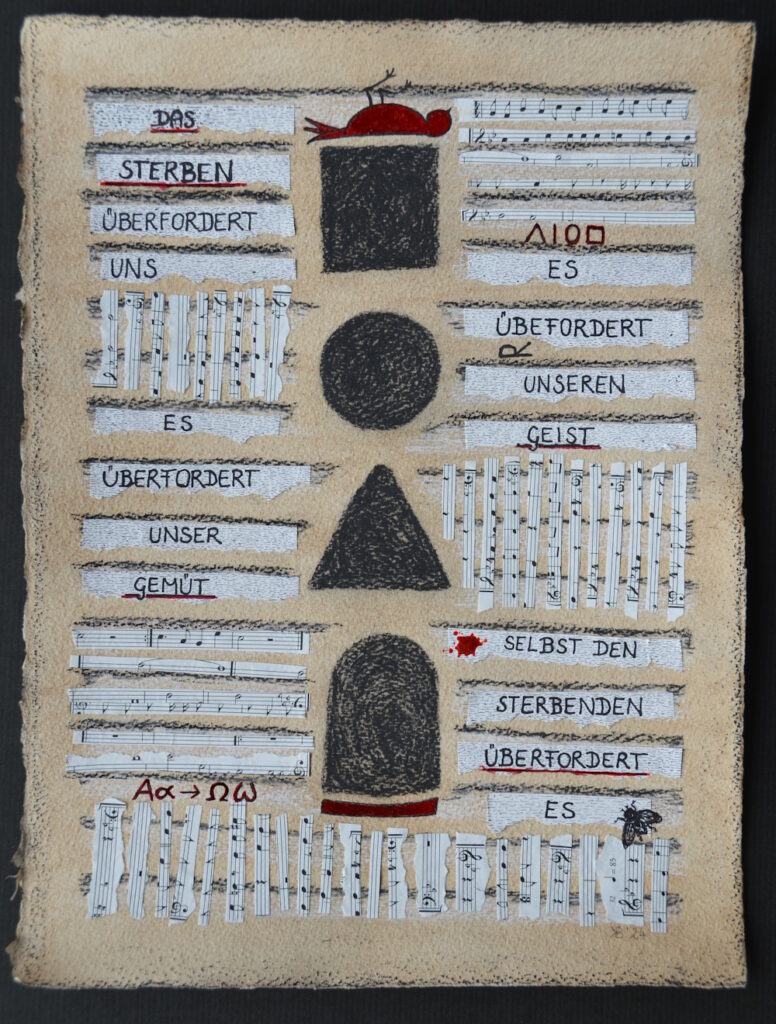 DAS
STERBEN
ÜBERFORDERT
UNS
ES
ÜBERFORDERT
UNSER
GEMÜT
Aα→Ωω
ΛIO□
ES
ÜBEFORDERT
R
UNSEREN
GEIST
SELBST DEN
STERBENDEN
ÜBERFORDERT
ES
= 85